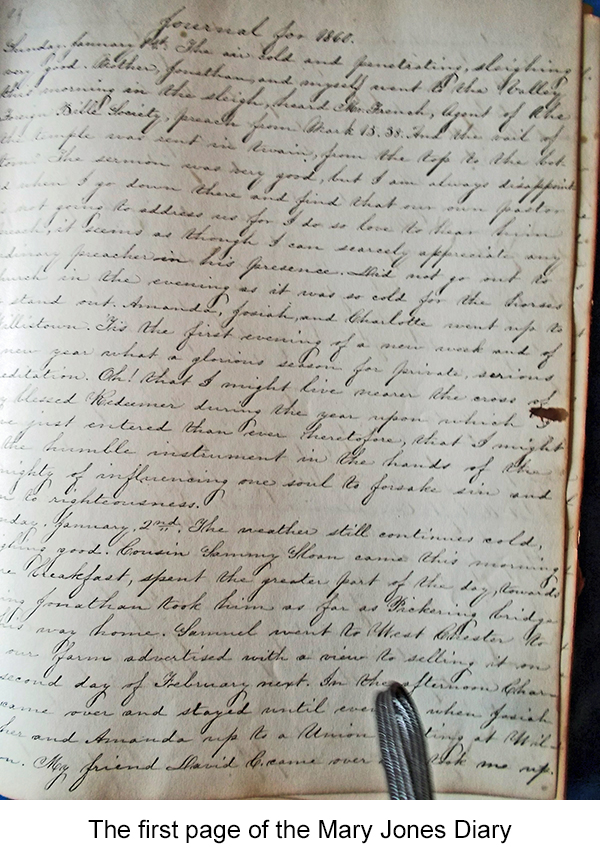 Journal for 1860.
Sunday, January 1st. The air cold and penetrating, sleighing
very good. Father, Jonathan, and myself went to the Valley
this morning in the sleigh, heard Mr. French, Agent of the
Foreign Bible Society, preach from Mark 15.38. And the vail of
the temple was rent in twain, from the top to the bot
tom. The sermon was very good, but I am always disappoint
d when I go down there and find that our own pastor
s not going to address us for I do so love to hear him
preach, it seems as though I can scarcely appreciate any
dinary preacher in his presence. Did not go out to
hurch in the evening as it was so cold for the horses
stand out. Amanda, Josiah, and Charlotte went up to
llistown. Tis the first evening of a new week and of
new year what a glorious season for private, serious
editation. Oh! that I might live nearer the cross of
y blessed Redeemer during the year upon which
ve just entered than ever heretofore, that I might
the humble instrument in the hands of the
mighty of influencing one soul to forsake sin and
n to righteousness.
nday, January, 2nd. The weather still continues cold,
ghing good. Cousin Sammy Sloan came this morning
re breakfast, spent the greater part of the day, towards
ing Jonathan took him as far as Pickering bridge
his way home. Samuel went to West Chester to
our farm advertised with a view to selling it on
second day of February next. In the afternoon Char
came over and stayed until even when Josiah
her and Amanda up to a Union ting at Wil
on. My friend David C. came over took me up.
The first page of the Mary Jones Diary